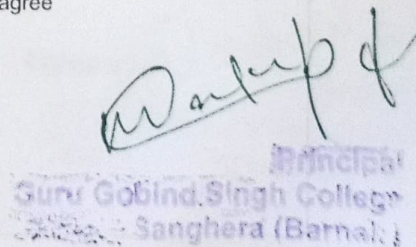 agree
Principal
Guru Gobind Singh College
Sanghera (Barnala)